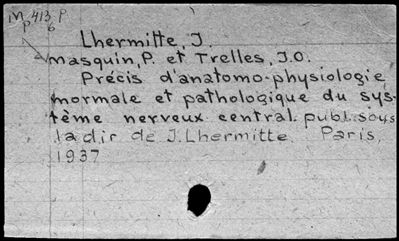 M 413 P
P 6
Lhermitte, J.
Masquin, P. et Trelles, J.O.
Précis d'anatomo-physiologie
normale et pathologique du sys-
tème nerveux central. publ. sous
la dir. de J. Lhermitte Paris,
1937